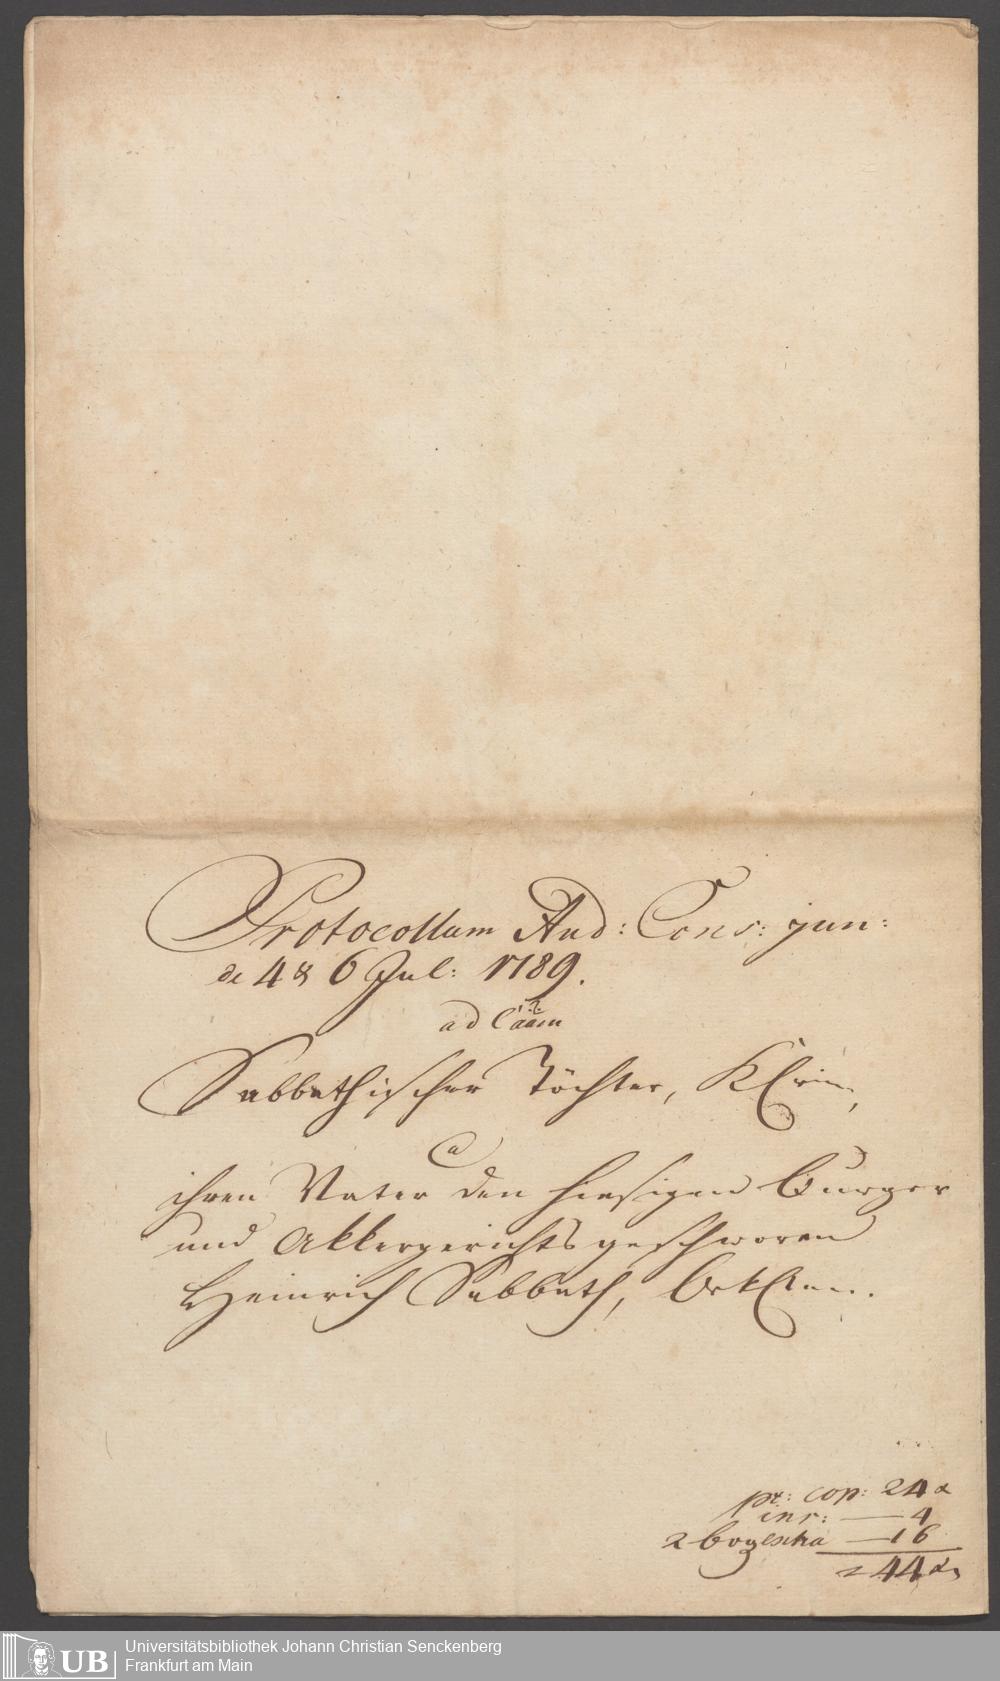 Protocollum Aud: Cons: jun:
de 4 & 6 Jul: 1789.
ad Cãam
Sabbathischer Töchter, Klrin,
Ca
ihren Vater den hiesigen Burger
und Akkergerichtsgeschworen
Heinrich Sabbath, Bekltn.
pr: cop: 24 x
ins: — 4
2 Bog extra — 16
44 xr
UB
Universitätsbibliothek Johann Christian Senckenberg
Frankfurt am Main